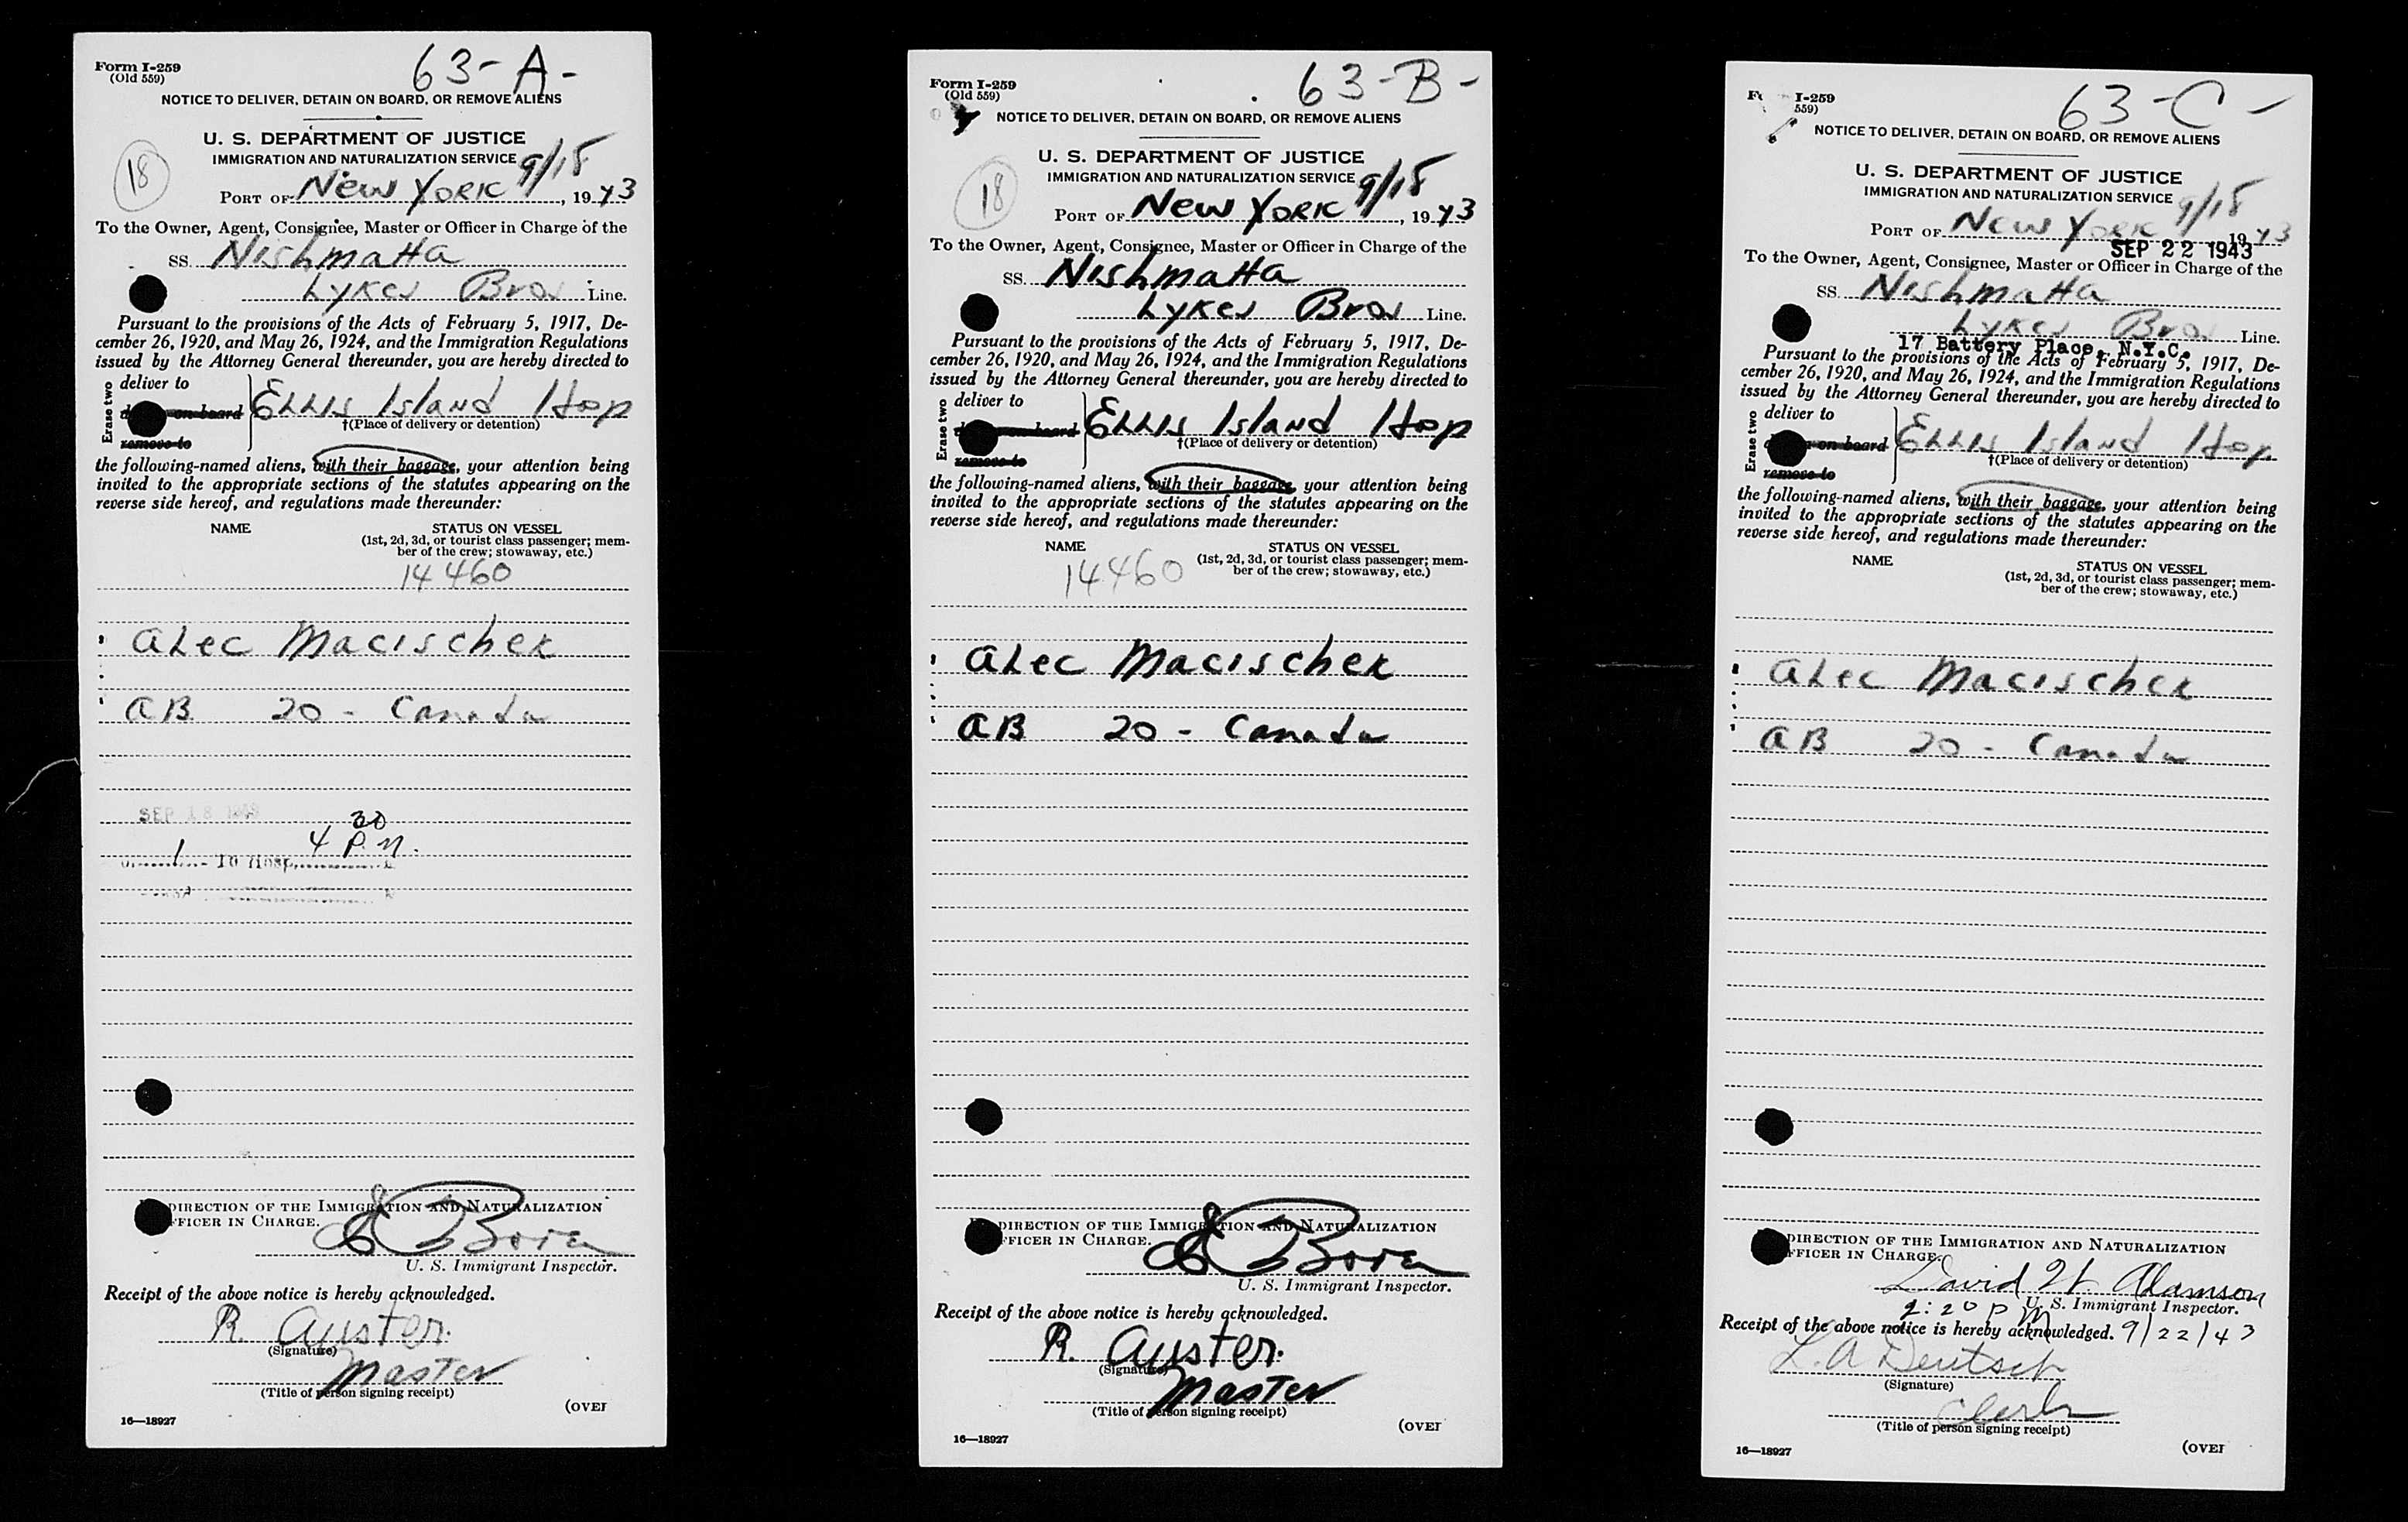 63-A-
Form I-259
(Old 559)
NOTICE TO DELIVER, DETAIN ON BOARD, OR REMOVE ALIENS
U. S. DEPARTMENT OF JUSTICE
IMMIGRATION AND NATURALIZATION SERVICE
18
PORT OF New York 9/18, 1943
To the Owner, Agent, Consignee, Master or Officer in Charge of the
SS. Nishmaha
Lykes Bros Line.
Pursuant to the provisions of the Acts of February 5, 1917, De-
cember 26, 1920, and May 26, 1924, and the Immigration Regulations
issued by the Attorney General thereunder, you are hereby directed to
Erase two
deliver to
on board
remove to
Ellis Island Hop
†(Place of delivery or detention)
the following-named aliens, with their baggage, your attention being
invited to the appropriate sections of the statutes appearing on the
reverse side hereof, and regulations made thereunder:
NAME
STATUS ON VESSEL
(1st, 2d, 3d, or tourist class passenger; mem-
ber of the crew; stowaway, etc.)
14460
Alec Macischek
AB 20 - Canada
SEP 18 1943
4 30 P.M.
1 To Hosp.
DIRECTION OF THE IMMIGRATION AND NATURALIZATION
FFICER IN CHARGE.
U. S. Immigrant Inspector.
Receipt of the above notice is hereby acknowledged.
R. Auster.
(Signature)
Master
(Title of person signing receipt)
(OVER
16—18927
63-B-
Form I-259
(Old 559)
NOTICE TO DELIVER, DETAIN ON BOARD, OR REMOVE ALIENS
U. S. DEPARTMENT OF JUSTICE
IMMIGRATION AND NATURALIZATION SERVICE
18
PORT OF New York 9/18, 1943
To the Owner, Agent, Consignee, Master or Officer in Charge of the
SS. Nishmaha
Lykes Bros Line.
Pursuant to the provisions of the Acts of February 5, 1917, De-
cember 26, 1920, and May 26, 1924, and the Immigration Regulations
issued by the Attorney General thereunder, you are hereby directed to
Erase two
deliver to
on board
remove to
Ellis Island Hop
†(Place of delivery or detention)
the following-named aliens, with their baggage, your attention being
invited to the appropriate sections of the statutes appearing on the
reverse side hereof, and regulations made thereunder:
NAME
STATUS ON VESSEL
(1st, 2d, 3d, or tourist class passenger; mem-
ber of the crew; stowaway, etc.)
14460
Alec Macischek
AB 20 - Canada
DIRECTION OF THE IMMIGRATION AND NATURALIZATION
FFICER IN CHARGE.
U. S. Immigrant Inspector.
Receipt of the above notice is hereby acknowledged.
R. Auster.
(Signature)
Master
(Title of person signing receipt)
(OVER
16—18927
63-C-
I-259
559)
NOTICE TO DELIVER, DETAIN ON BOARD, OR REMOVE ALIENS
U. S. DEPARTMENT OF JUSTICE
IMMIGRATION AND NATURALIZATION SERVICE
PORT OF New York 9/18 1943
SEP 22 1943
To the Owner, Agent, Consignee, Master or Officer in Charge of the
SS. Nishmaha
Lykes Bros Line.
17 Battery Place, N.Y.C.
Pursuant to the provisions of the Acts of February 5, 1917, De-
cember 26, 1920, and May 26, 1924, and the Immigration Regulations
issued by the Attorney General thereunder, you are hereby directed to
Erase two
deliver to
on board
remove to
Ellis Island Hop
†(Place of delivery or detention)
the following-named aliens, with their baggage, your attention being
invited to the appropriate sections of the statutes appearing on the
reverse side hereof, and regulations made thereunder:
NAME
STATUS ON VESSEL
(1st, 2d, 3d, or tourist class passenger; mem-
ber of the crew; stowaway, etc.)
Alec Macischek
AB 20 - Canada
DIRECTION OF THE IMMIGRATION AND NATURALIZATION
FFICER IN CHARGE.
David H. Adamson
U. S. Immigrant Inspector.
2:20 PM
Receipt of the above notice is hereby acknowledged. 9/22/43
L. A Deutsch
(Signature)
Clerk
(Title of person signing receipt)
(OVER
16—18927